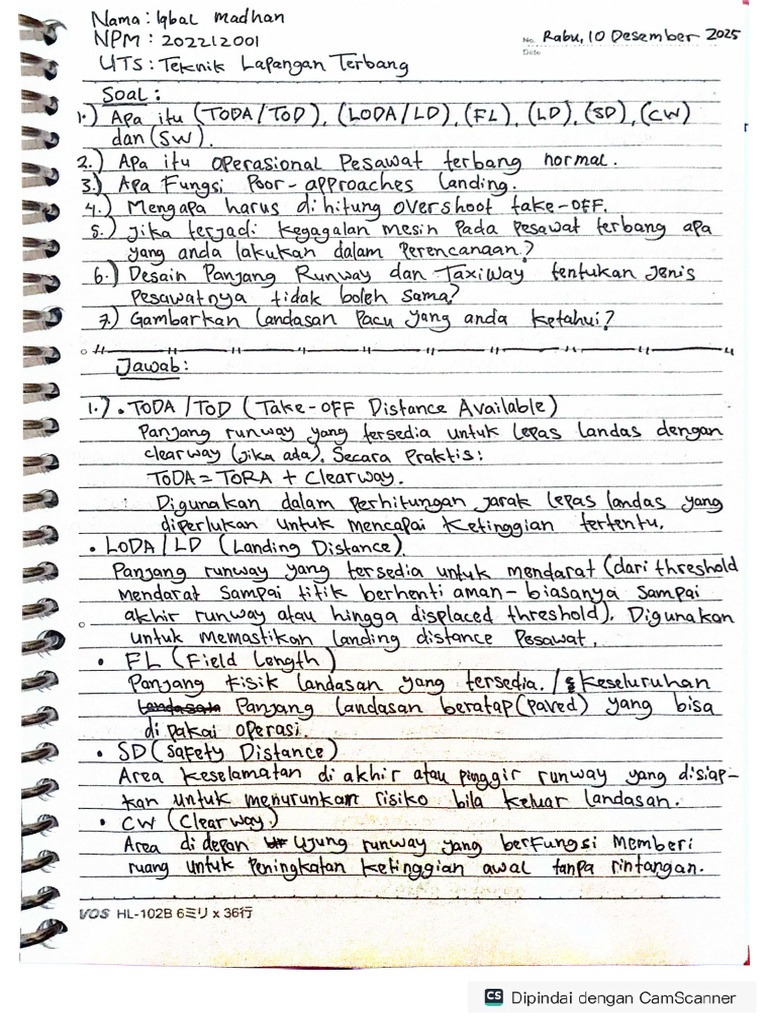 Nama : Iqbal Madhan
NPM : 202212001
No. Rabu, 10 Desember 2025
Date
UTS : Teknik Lapangan Terbang
Soal :
1.) Apa itu (TODA/TOD), (LODA/LD), (FL), (LD), (SD), (CW)
dan (SW).
2.) Apa itu operasional Pesawat terbang normal.
3.) Apa Fungsi Poor-approaches Landing.
4.) Mengapa harus di hitung overshoot take-OFF.
5.) Jika terjadi kegagalan mesin Pada pesawat terbang apa
yang anda lakukan dalam Perencanaan?
6.) Desain Panjang Runway dan Taxiway tentukan Jenis
Pesawatnya tidak boleh sama?
7.) Gambarkan landasan Pacu yang anda ketahui?
Jawab :
1.) • TODA / TOD ( Take-OFF Distance Available )
Panjang runway yang tersedia untuk lepas landas dengan
clearway (jika ada). Secara Praktis :
TODA = TORA + Clearway.
Digunakan dalam Perhitungan jarak lepas landas yang
diperlukan untuk mencapai Ketinggian tertentu.
• LODA / LD (Landing Distance).
Panjang runway yang tersedia untuk mendarat (dari threshold
mendarat sampai titik berhenti aman - biasanya sampai
akhir runway atau hingga displaced threshold). Digunakan
untuk memastikan landing distance Pesawat.
• FL ( Field Length )
Panjang Fisik landasan yang tersedia. / Keseluruhan
Panjang landasan beratap (paved) yang bisa
di pakai operasi.
• SD ( Safety Distance )
Area keselamatan di akhir atau pinggir runway yang disiap-
kan untuk menurunkan risiko bila keluar landasan.
• CW ( Clearway )
Area di depan Ujung runway yang berfungsi Memberi
ruang untuk Peningkatan ketinggian awal tanpa rintangan.
VOS HL-102B 6ミリ x 36行
CS Dipindai dengan CamScanner